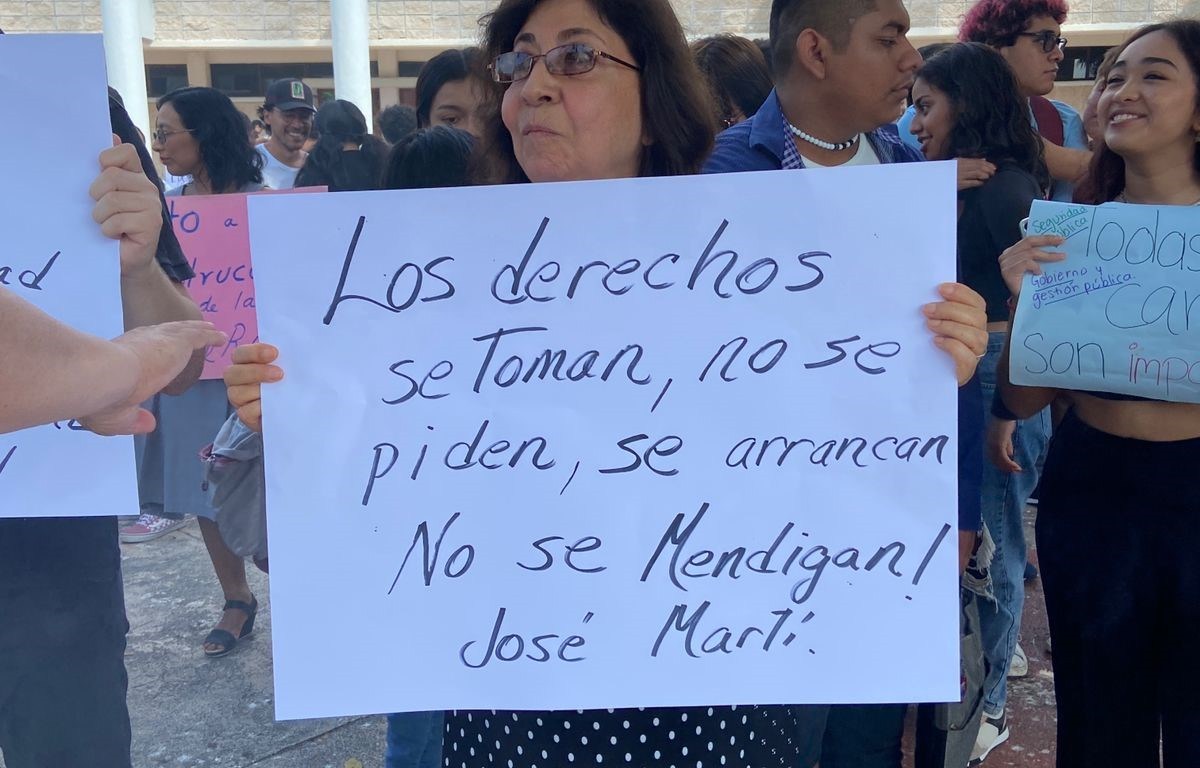 ad
to a
de la
Los derechos
se Toman, no se
piden, se arrancan
No se Mendigan!
José Martí.
Gobierno y
gestión pública
Todas
Son